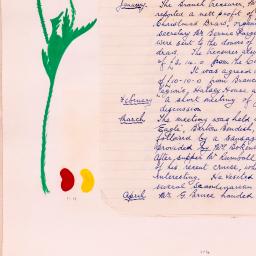 January. The Branch Treasurer, M
reported a nett profit of
Christmas Draw,
secretary Mr Bernie
were sent to the donors of
draw. The Treasurer also
of £3.14.0 from the C
It was agreed
of 10-10-0 from Branch
Paquins, Hatley House a
February A short meeting of
discussion
March The meeting was held a
Eagle", Barton Bendish,
followed by a sausage
provided by Mr
After supper Mr Rumball
of his recent cruise, wh
interesting. He visited
several Scandinavian
April Mr G. Bruce handed